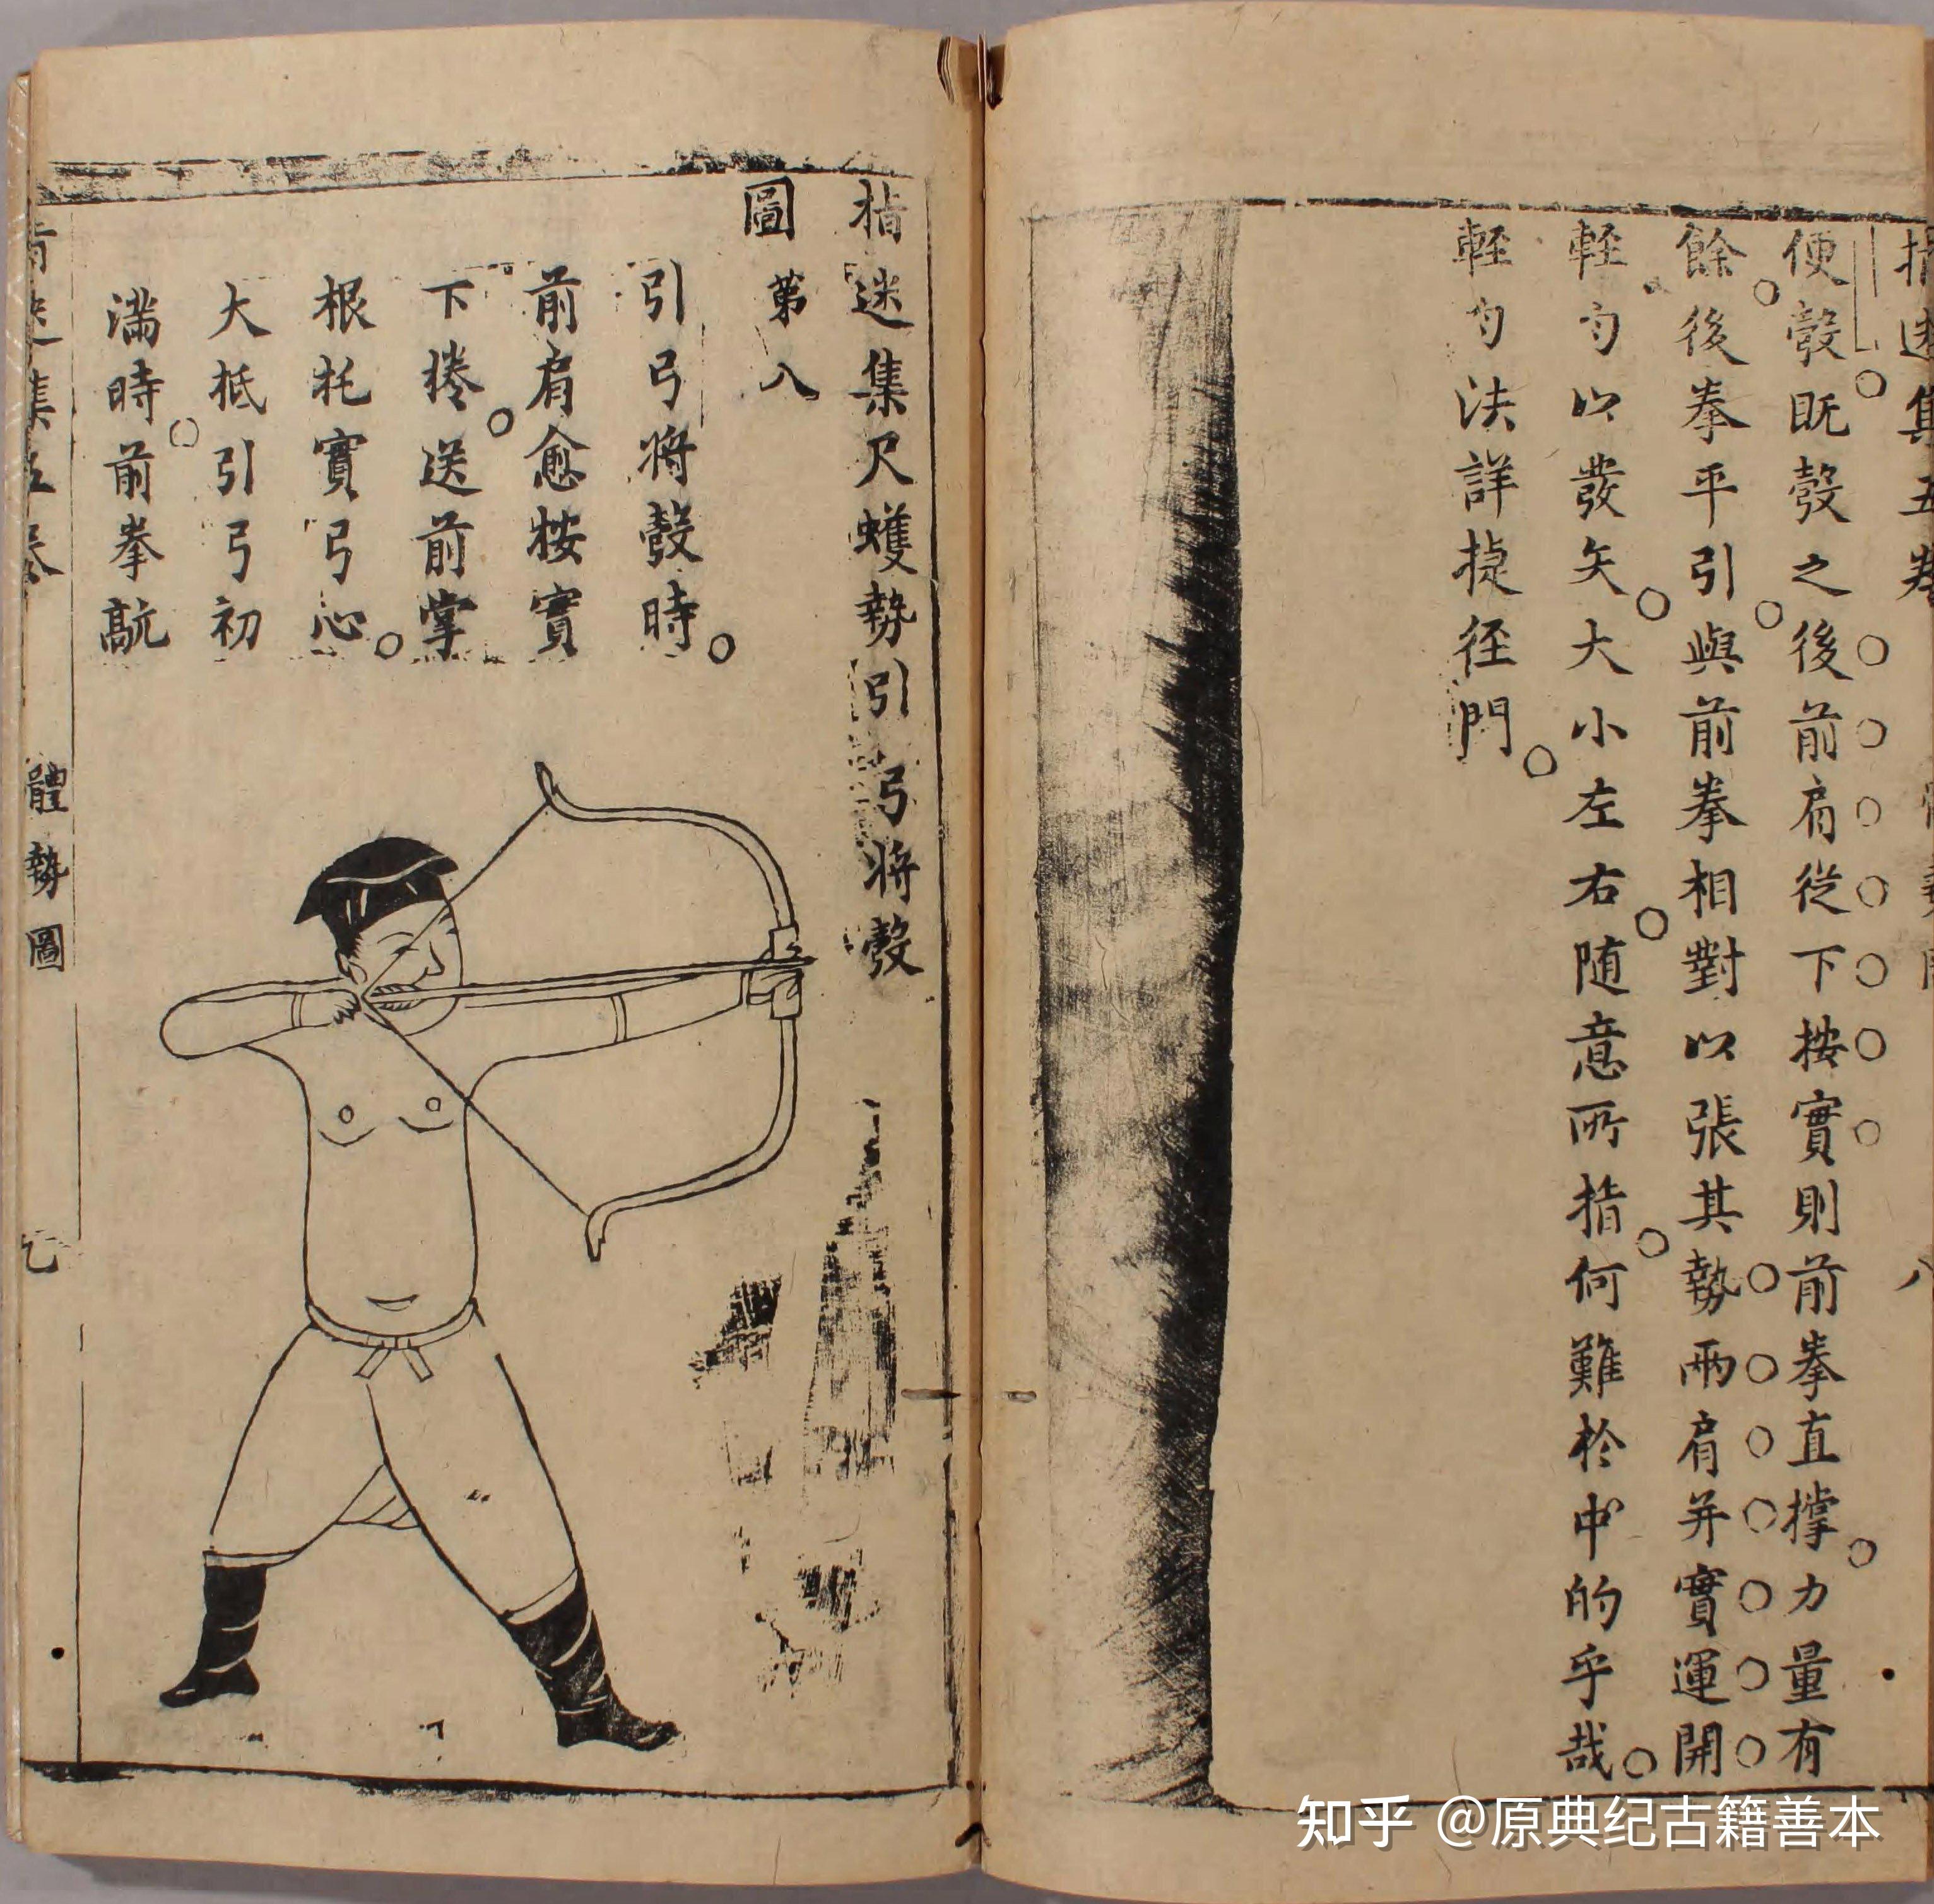 指迷集五卷
八
便彀既彀之後前肩從下按實則前拳直撐力量有
餘後拳平引與前拳相對以張其勢兩肩并實運開
輕勻以發矢大小左右随意所指何難於中的乎哉
輕勻法詳捷徑門
指迷集尺蠖勢引弓將彀
圖第八
引弓將彀時
前肩愈按實
下捲送前掌
根托實弓心
大抵引弓初
滿時前拳
指迷集五卷 體勢圖
知乎 @原典纪古籍善本